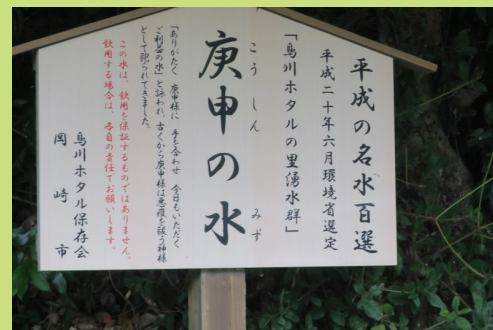 平成の名水百選
平成二十年六月環境省選定
「鳥川ホタルの里湧水群」
こうしん みず
庚申の水
「ありがたく 庚申様に 手を合わせ 今日もいただく
ご利益の水」と詠われ、古くから庚申様は悪疫を祓う神様
として祀られてきました。
この水は、飲用を保証するものではありません。
飲用する場合は、各自の責任でお願いします。
鳥川ホタル保存会
岡崎市